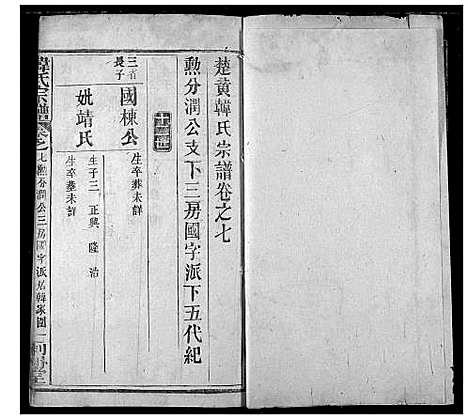 楚黄韓氏宗譜卷之七
勲分潤公支下三房國字派下五代紀
十三世
三省長子
國棟公
生卒葬未詳
妣靖氏
生子三 正興 隆 治
生卒葬未詳
韓氏宗譜 卷之七 勲分潤公三房國字派居韓家園 一